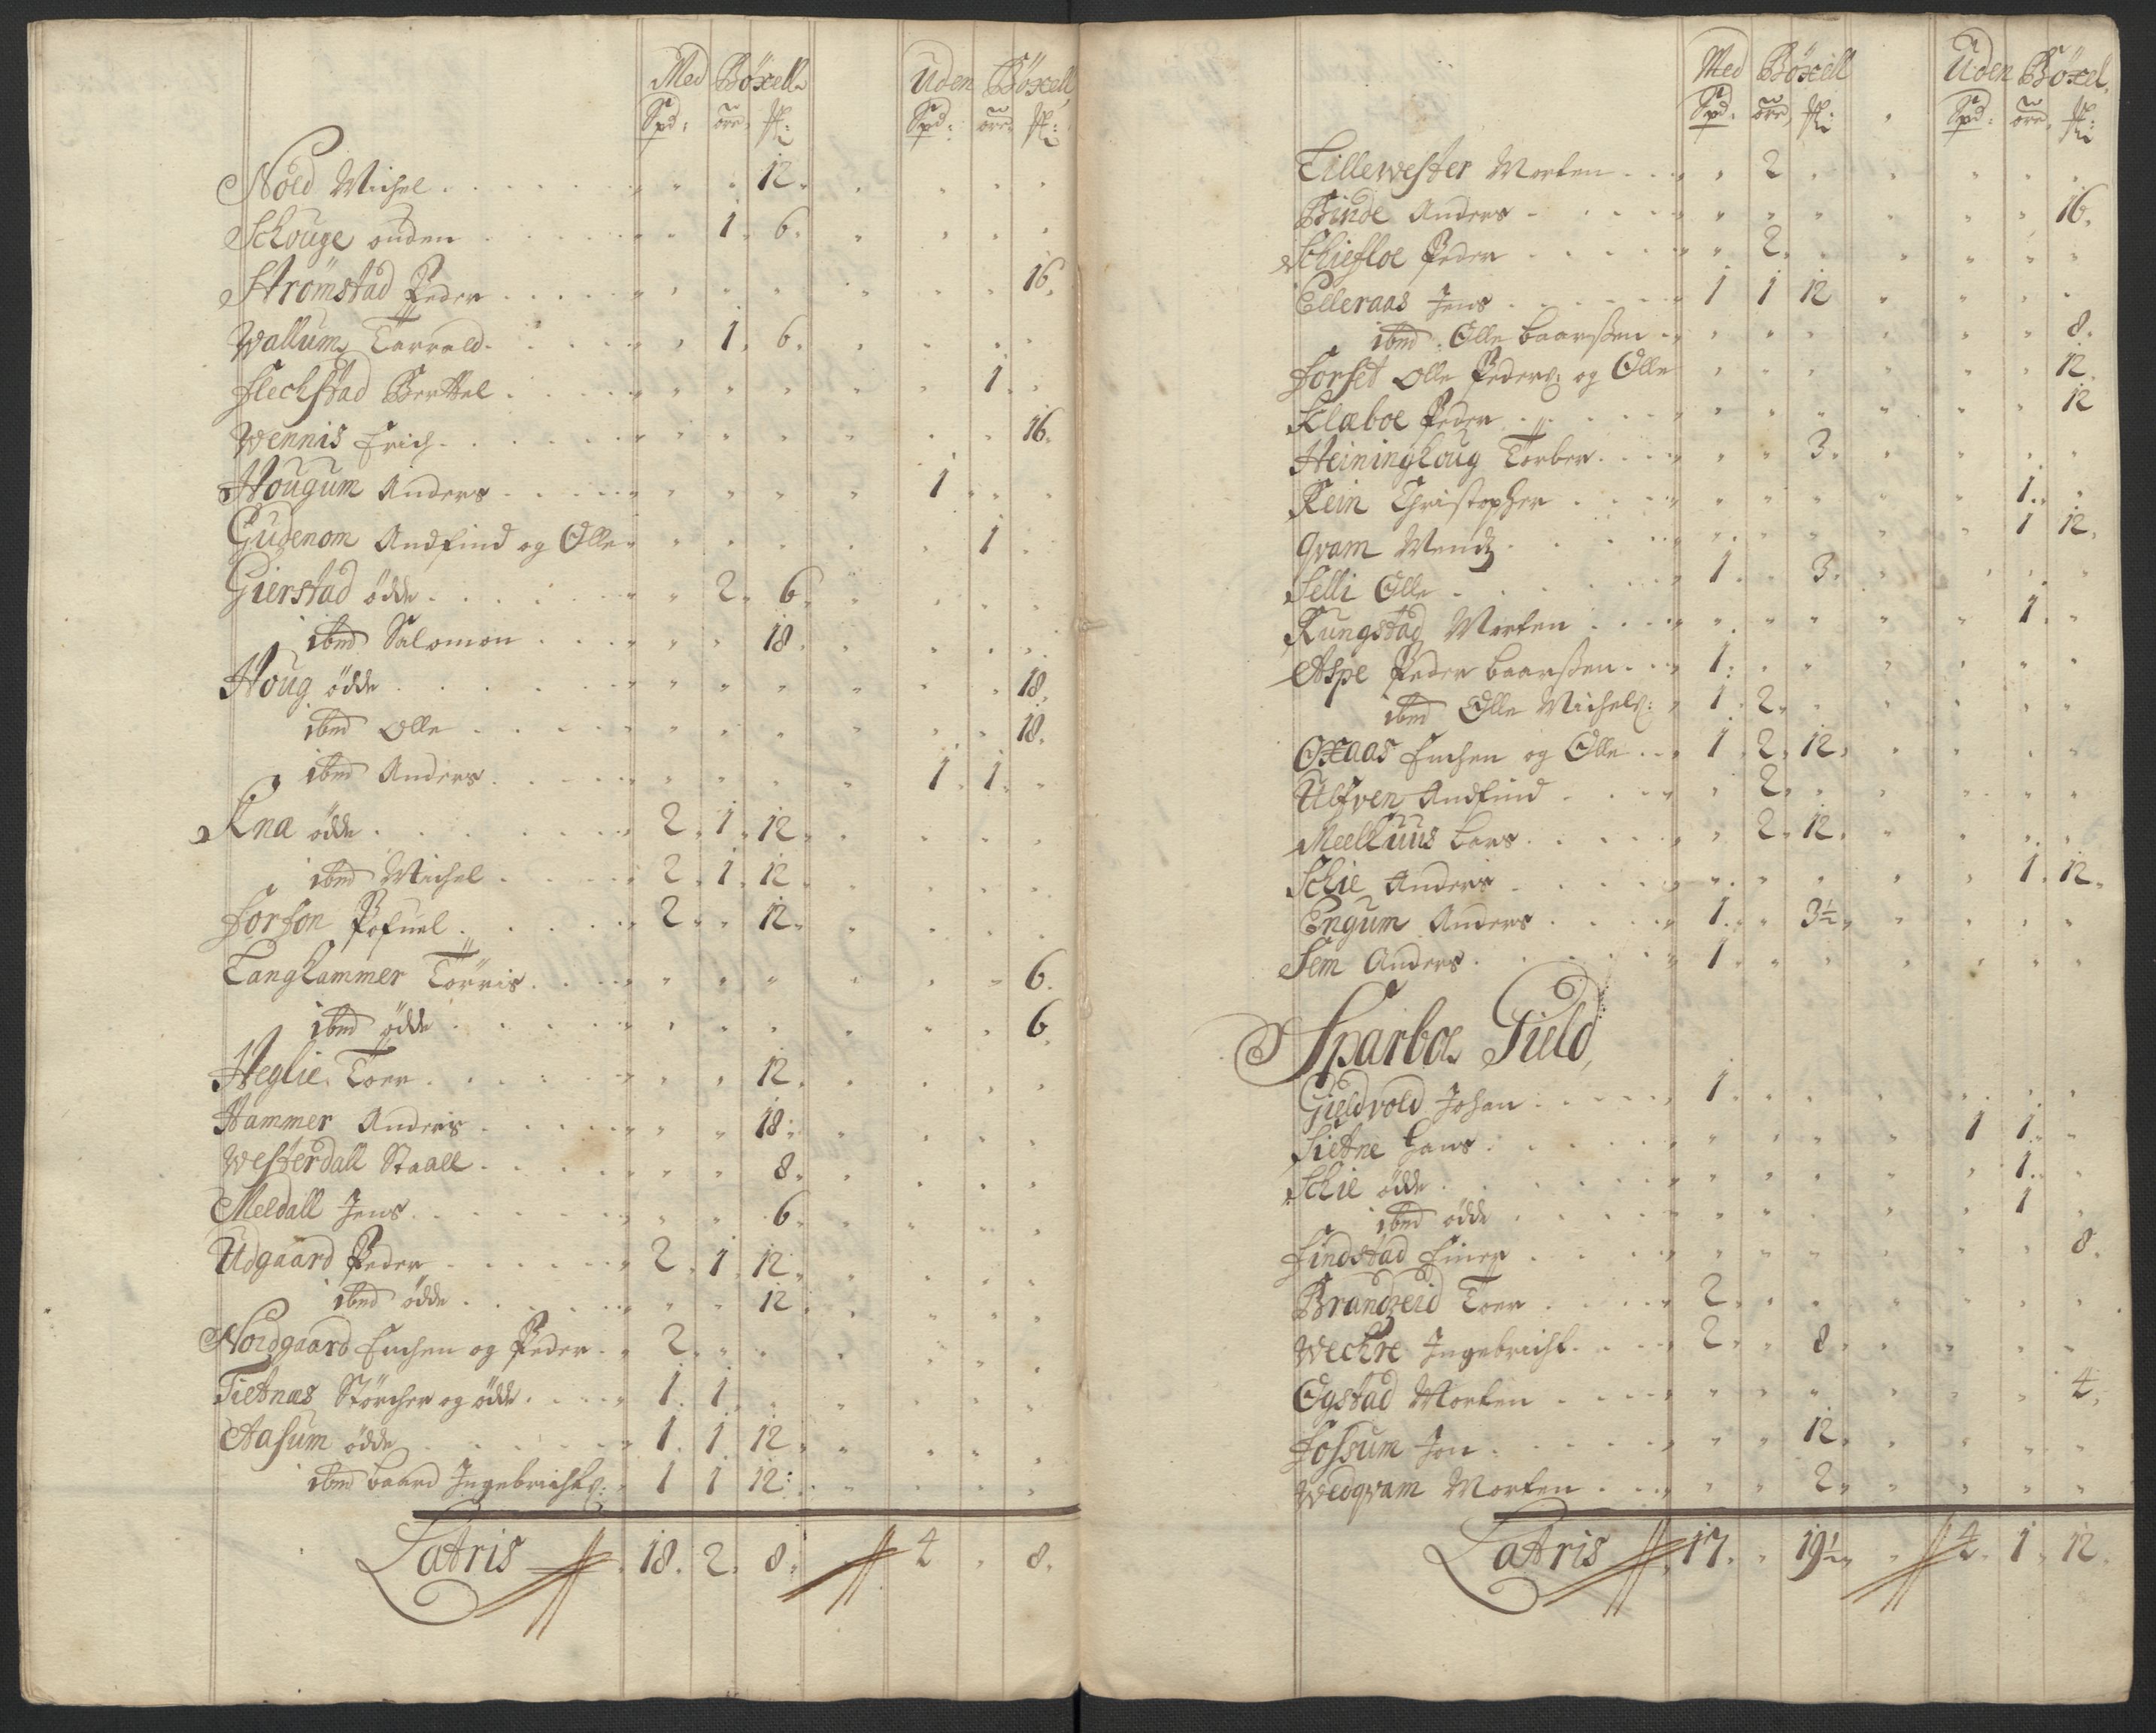 Med Böxell Uden Böxell
Spd: öre, ℔: Spd: öre, ℔:
Nöld Michel 12
Schouge önden 1 6
Strömstad Peder 16
Wallum Tarrald 1 6
Flechstad Berttel 1
Wennis Erich 16
Hougum Anders 1
Gudenom Andfind og Olle 1
Gierstad ödde 2 6
ibed Salomon 18
Houg ödde 18
ibed Olle 18
ibed Anders 1 1
Kna ödde 2 1 12
ibed Michel 2 1 12
Forfon Pofuel 2 12
Langhammer Törris 6
ibed ödde 6
Heglie Toer 12
Hammer Anders 18
Westerdall Staall 8
Meldall Jens 6
Udgaard Peder 2 1 12
ibed ödde 12
Nordgaard Enchen og Peder 2
Tietnæs Störcher og ödde 1 1
Aasum ödde 1 1 12
ibed Baard Ingebrichts: 1 1 12
Latris 18 2 8 4 8
Med Böxell Uden Böxel
Spd: öre, ℔: Spd: öre, ℔:
Lillewester Morten 2
Binde Anders 16
Schiefloe Peder 2
Elleraas Jens 1 1 12
ibed Olle Baarssen 8
Forset Olle Peders: og Olle 12
Klæboe Peder 12
Heininghoug Torber 3
Rein Christopher 1
Qvam Mendz 1 12
Selli Olle 1 3
Rungstad Morten 1
Aspe Peder Baarssen 1
ibed Olle Michels: 1 2
Oxaas Enchen og Olle 1 2 12
Ulfven Andfind 2
Meelhuus Lars 2 12
Schie Anders 1 12
Engum Anders 1 3½
Sem Anders 1
Sparboe Gield
Gieldvold Johan 1
Sietne Hans 1 1
Schie ödde 1
ibed ödde 1
Findstad Einer 8
Brandzeid Toer 2
Wechre Ingebricht 2 8
Ogstad Morten 4
Fossum Jon 12
Wedqvam Morten 2
Latris 17 19½ 4 1 12